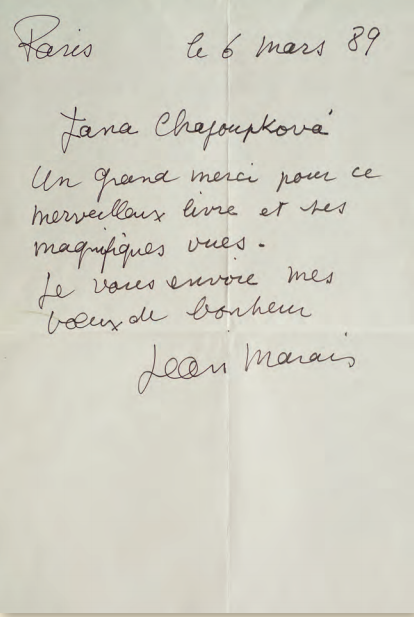 Paris le 6 mars 89
Jana Chajoupková
Un grand merci pour ce
merveilleux livre et ses
magnifiques vues.
Je vous envoie mes
voeux de bonheur
Jean Marais